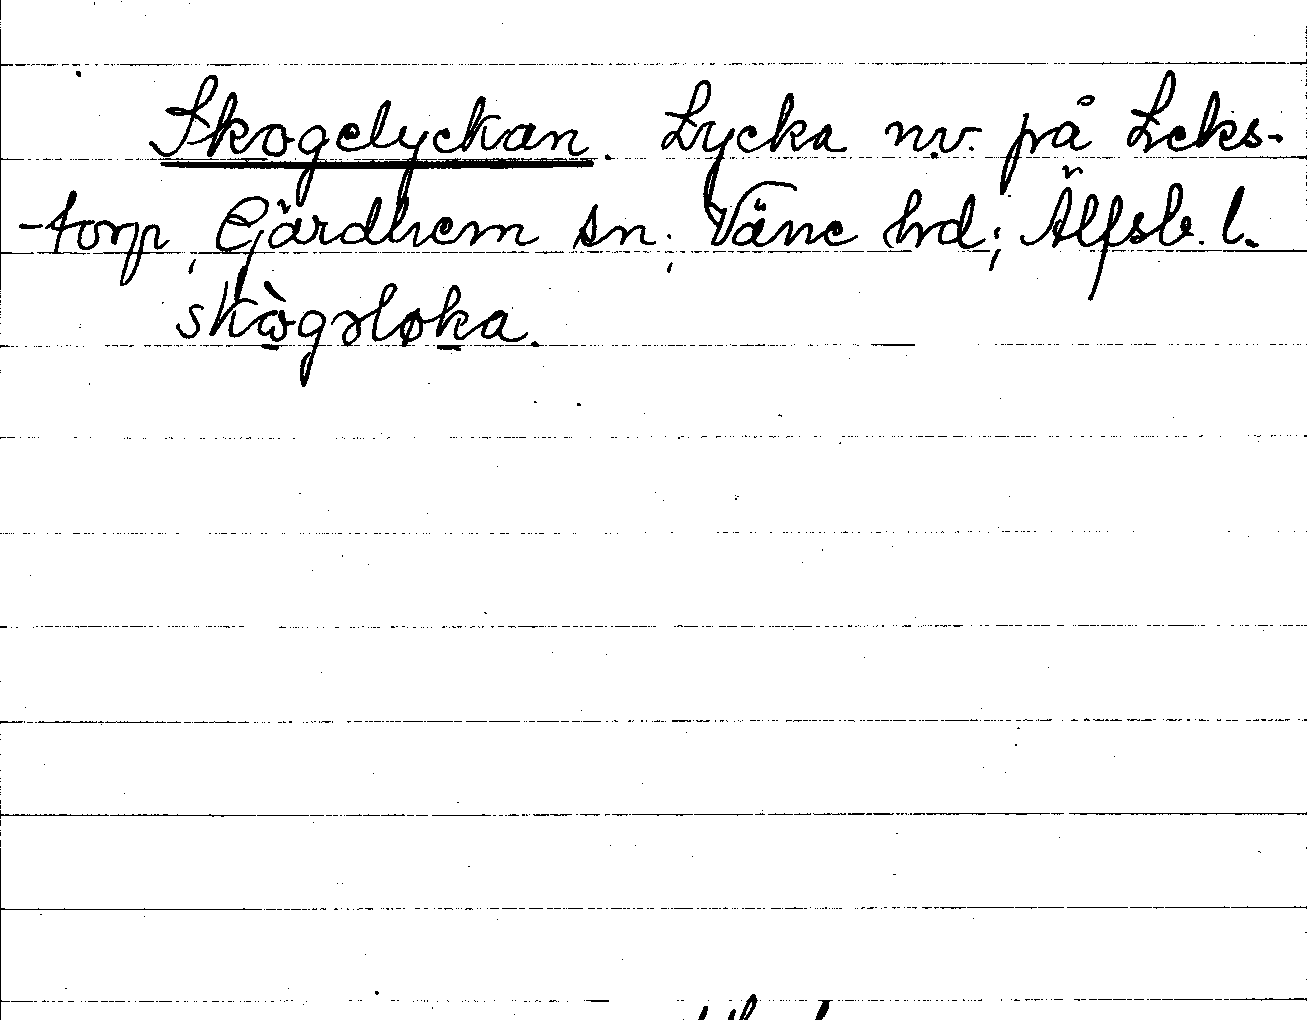 Skogelyckan. Lycka n.v. på Leks-
-torp, Gärdhem sn, Väne hd; Älfsb. l.
skògəløka.